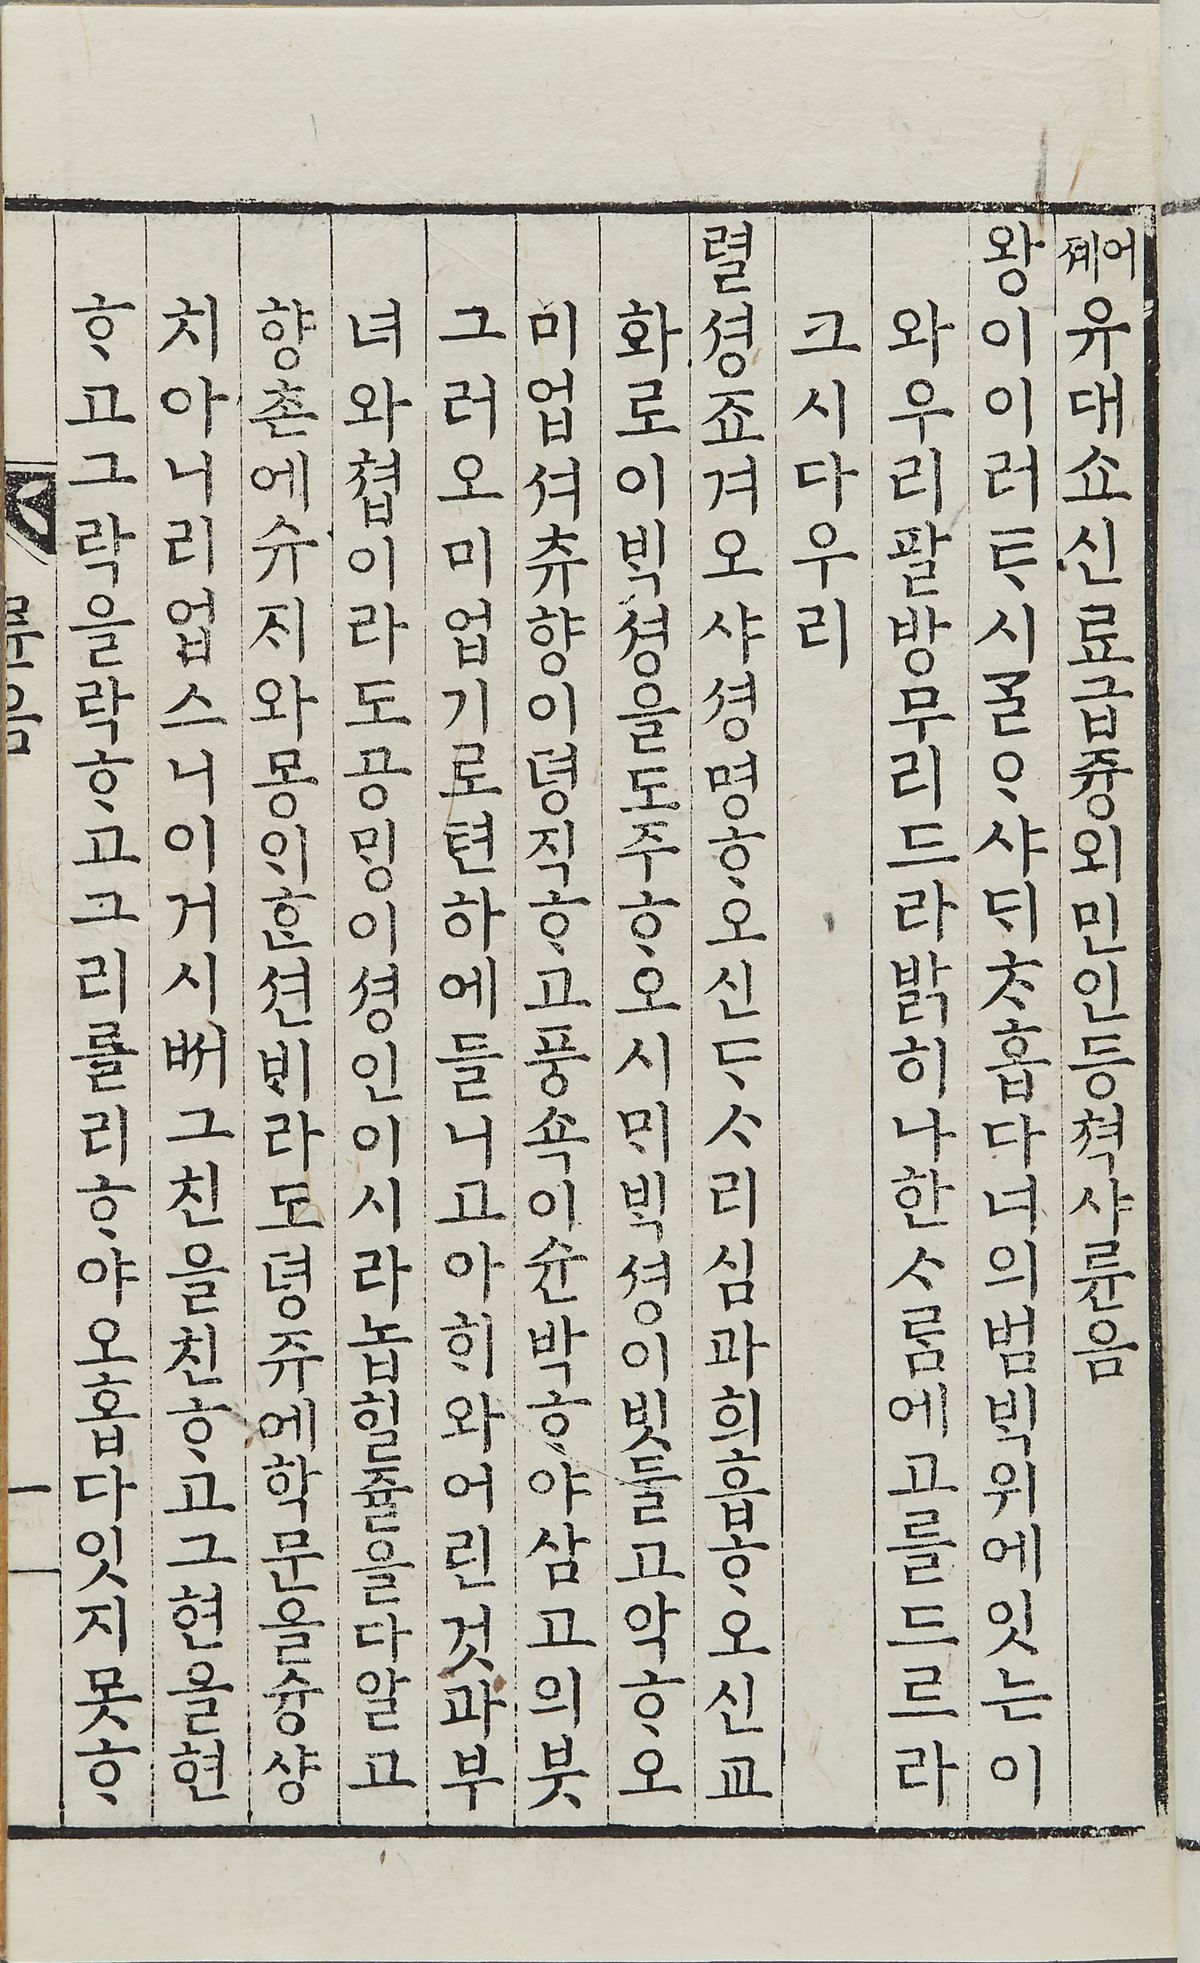 어졔유대쇼신료급즁외민인등쳑샤륜음
왕이이러ᄐᆞ시ᄀᆞᆯᄋᆞ샤ᄃᆡᄎᆞ홉다녀의범ᄇᆡᆨ위에잇는이
와우리팔방무리드라밝히나한ᄉᆞᄅᆞᆷ에고를드르라
크시다우리
렬셩죠겨오샤셩명ᄒᆞ오신ᄃᆞᄉᆞ리심과희흡ᄒᆞ오신교
화로이ᄇᆡᆨ셩을도주ᄒᆞ오시ᄆᆡᄇᆡᆨ셩이밧들고악ᄒᆞ오
미업셔츄향이뎡직ᄒᆞ고풍쇽이슌박ᄒᆞ야삼고의붓
그러오미업기로텬하에들니고아ᄒᆡ와어린것과부
녀와쳡이라도공밍이셩인이시라놉힐쥴을다알고
향촌에슈ᄌᆡ와몽ᄋᆡᄒᆞᆫ션ᄇᆡ라도뎡쥬에학문을슝샹
치아니리업스니이거시ᄡᅥ그친을친ᄒᆞ고그현을현
ᄒᆞ고그락을락ᄒᆞ고그리를리ᄒᆞ야오홉다잇지못ᄒᆞ